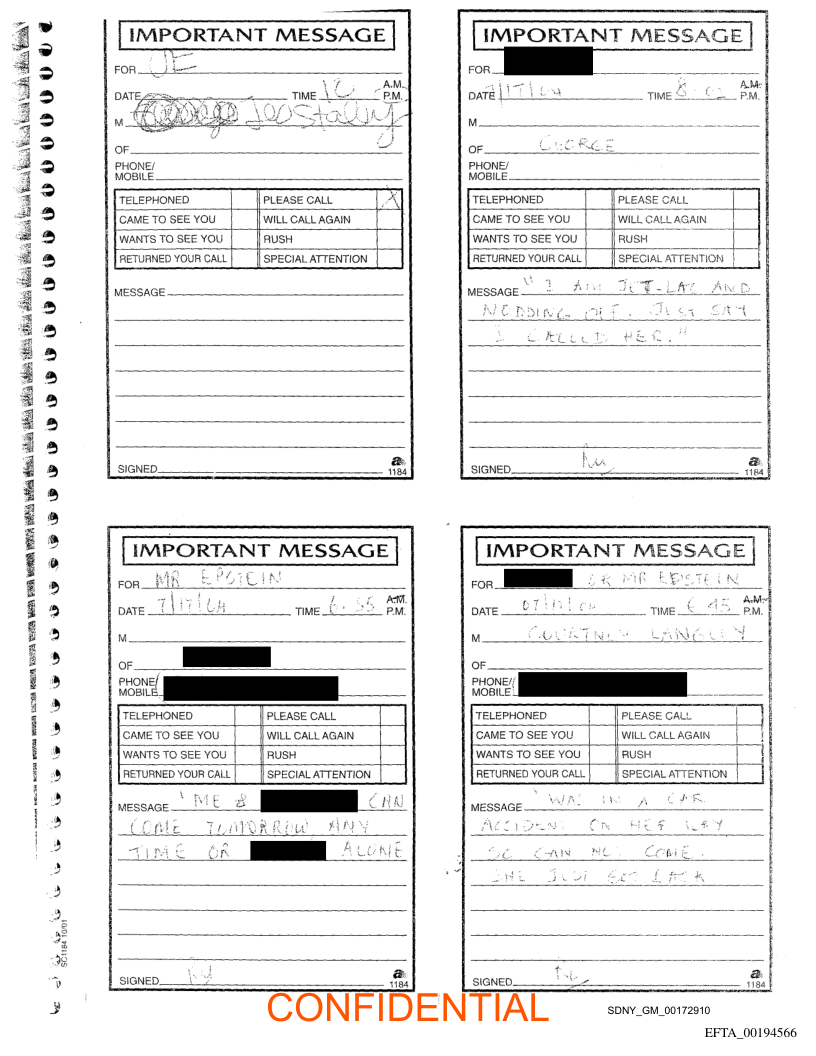 IMPORTANT MESSAGE
FOR JE
DATE TIME 12 A.M. P.M.
M Jes Staley
OF
PHONE/
MOBILE
TELEPHONED PLEASE CALL X
CAME TO SEE YOU WILL CALL AGAIN
WANTS TO SEE YOU RUSH
RETURNED YOUR CALL SPECIAL ATTENTION
MESSAGE
SIGNED
a
1184
IMPORTANT MESSAGE
FOR
DATE 7/17/04 TIME 8:02 A.M. P.M.
M
OF GEORGE
PHONE/
MOBILE
TELEPHONED PLEASE CALL
CAME TO SEE YOU WILL CALL AGAIN
WANTS TO SEE YOU RUSH
RETURNED YOUR CALL SPECIAL ATTENTION
MESSAGE "I AM JET-LAG AND
NODDING OFF. JUST SAY
I CALLED HER."
SIGNED
a
1184
IMPORTANT MESSAGE
FOR MR EPSTEIN
DATE 7/17/04 TIME 6.55 A.M. P.M.
M
OF
PHONE/
MOBILE
TELEPHONED PLEASE CALL
CAME TO SEE YOU WILL CALL AGAIN
WANTS TO SEE YOU RUSH
RETURNED YOUR CALL SPECIAL ATTENTION
MESSAGE "ME & CAN
COME TOMORROW ANY
TIME OR ALONE
SIGNED
a
1184
IMPORTANT MESSAGE
FOR OR MR EPSTEIN
DATE 07/17/04 TIME 6.45 A.M. P.M.
M COURTNEY LANGLEY
OF
PHONE/
MOBILE
TELEPHONED PLEASE CALL
CAME TO SEE YOU WILL CALL AGAIN
WANTS TO SEE YOU RUSH
RETURNED YOUR CALL SPECIAL ATTENTION
MESSAGE "WAS IN A CAR
ACCIDENT ON HER WAY
SO CAN NOT COME.
SHE JUST GOT BACK
SIGNED
a
1184
SC1184 10/01
CONFIDENTIAL
SDNY_GM_00172910
EFTA_00194566